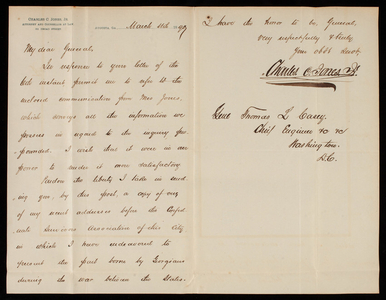 CHARLES C. JONES, JR.
March 18th 1889
My dear General,
In response to your letter of the
6th instant permit me to refer to the
enclosed communication from Mrs Jones,
which conveys all the information we
possess in regard to the inquiry pro-
pounded. I wish that it were in our
power to render it more satisfactory.
Pardon the liberty I take in send-
ing you, by this post, a copy of one
of my recent addresses before the Confed-
erate Survivors Association of this City
in which I have endeavored to
present the part borne by Georgians
during the war between the States.
I have the honor to be, General,
Very respectfully & truly
Your obdt Servt.
Charles C. Jones Jr.
Genl Thomas L. Casey.
Chief Engineer &c &c
Washington.
D.C.